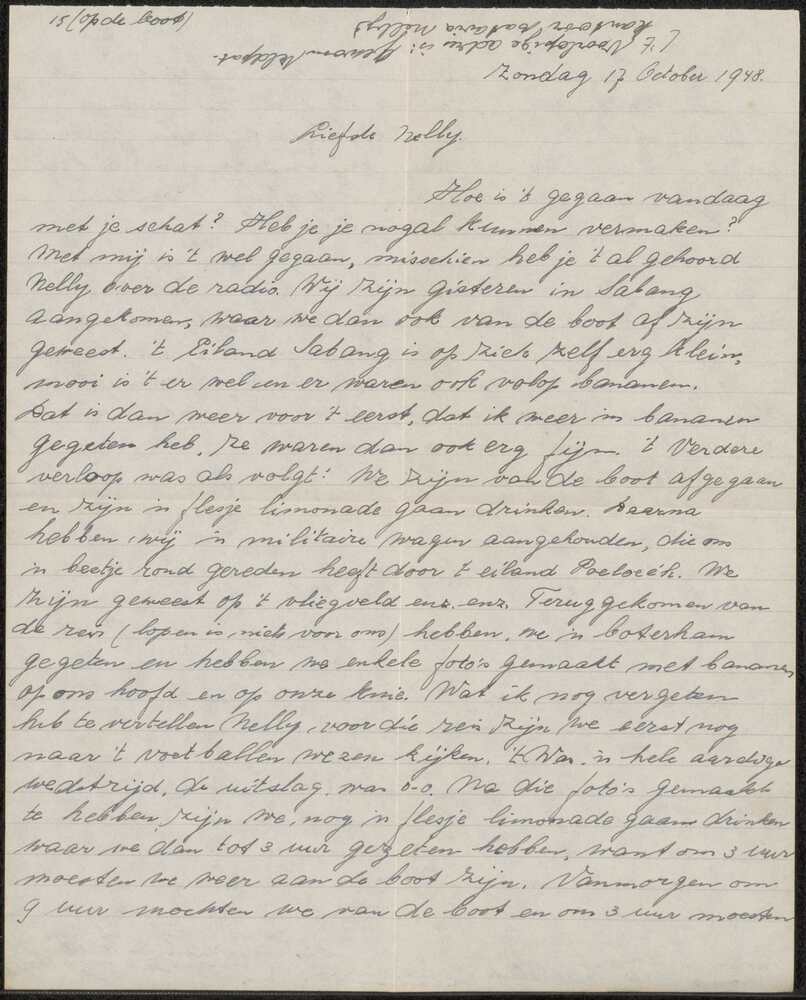 15) (op de boot)
('t Voorlopige adres is: gewoon Veldpost-
kantoor Batavia Nelly)
Zondag 17 October 1948.
Liefste Nelly.
Hoe is 't gegaan vandaag
met je schat? Heb je je nogal kunnen vermaken?
Met mij is 't wel gegaan, misschien heb je 't al gehoord
Nelly over de radio. Wij zijn gisteren in Sabang
aangekomen, waar we dan ook van de boot af zijn
geweest. 't Eiland Sabang is op zich zelf erg klein,
mooi is 't er wel en er waren ook volop bananen.
Dat is dan weer voor 't eerst, dat ik weer in bananen
gegeten heb, ze waren dan ook erg fijn. 't Verdere
verloop was als volgt: We zijn van de boot afgegaan
en zijn 'n flesje limonade gaan drinken. Daarna
hebben wij 'n militaire wagen aangehouden, die ons
'n beetje rond gereden heeft door 't eiland Poeloeëh. We
zijn geweest op 't vliegveld enz. enz. Teruggekomen van
de reis (lopen is niets voor ons) hebben we 'n boterham
gegeten en hebben we enkele foto's gemaakt met bananen
op ons hoofd en op onze knie. Wat ik nog vergeten
heb te vertellen Nelly, voor die reis zijn we eerst nog
naar 't voetballen wezen kijken. 't Was 'n hele aardige
wedstrijd, de uitslag was 0-0. Na die foto's gemaakt
te hebben, zijn we nog 'n flesje limonade gaan drinken
waar we dan tot 3 uur gezeten hebben, want om 3 uur
moesten we weer aan de boot zijn. Vanmorgen om
9 uur mochten we van de boot en om 3 uur moesten